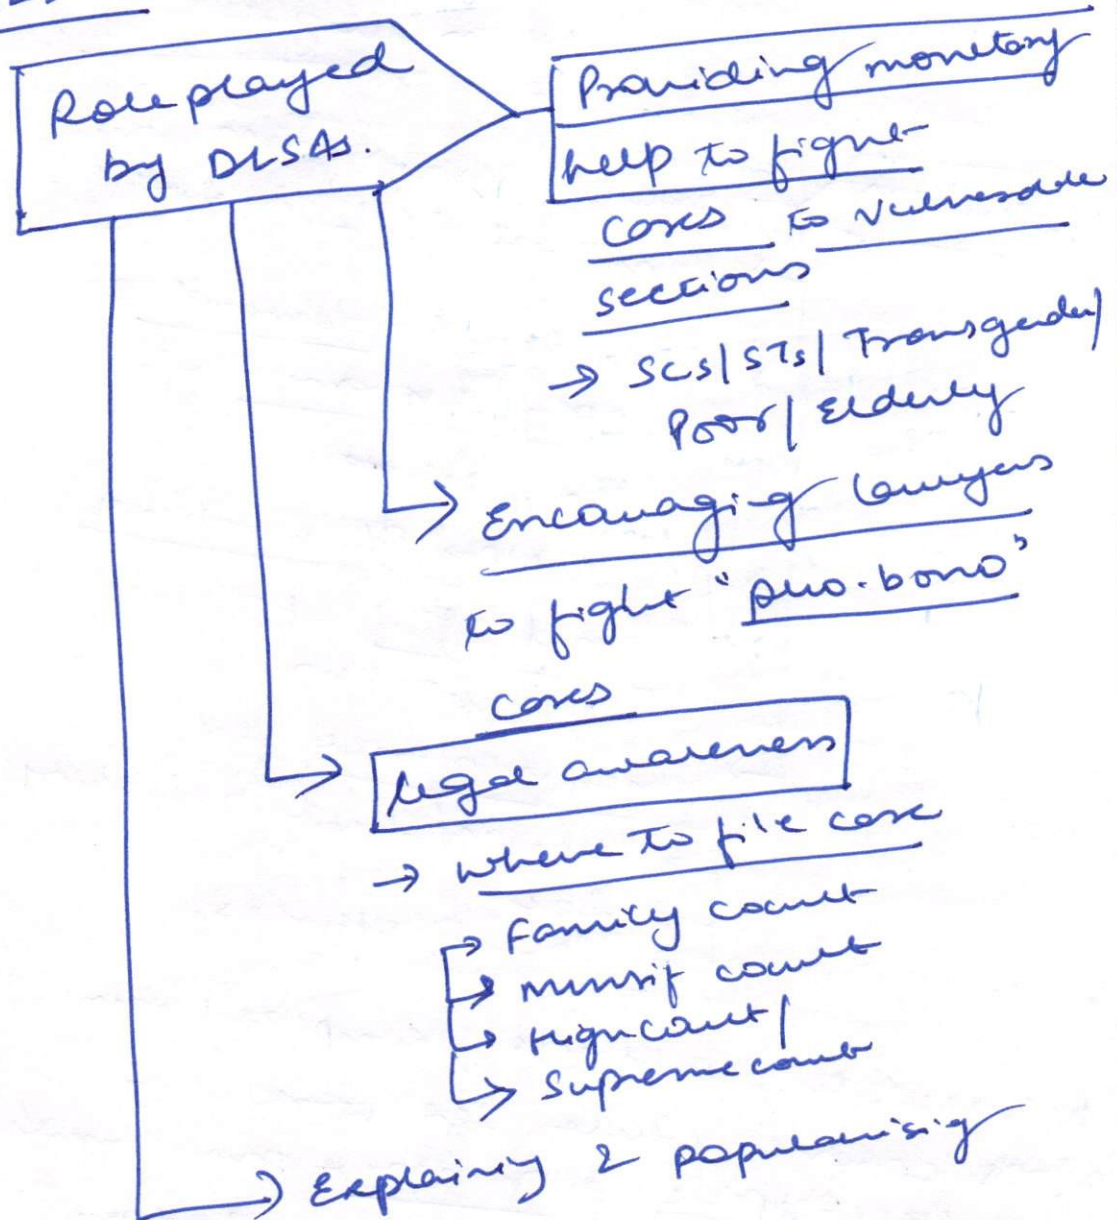 Role played
by DLSAs.
Providing monetary
help to fight
cases to vulnerable
sections
→ SCs/STs/Transgender/
Poor/Elderly
Encouraging lawyers
to fight "pro-bono"
cases
legal awareness
→ where to file case
→ Family court
→ munsif court
→ High court/
→ Supreme court
Explaining & popularising